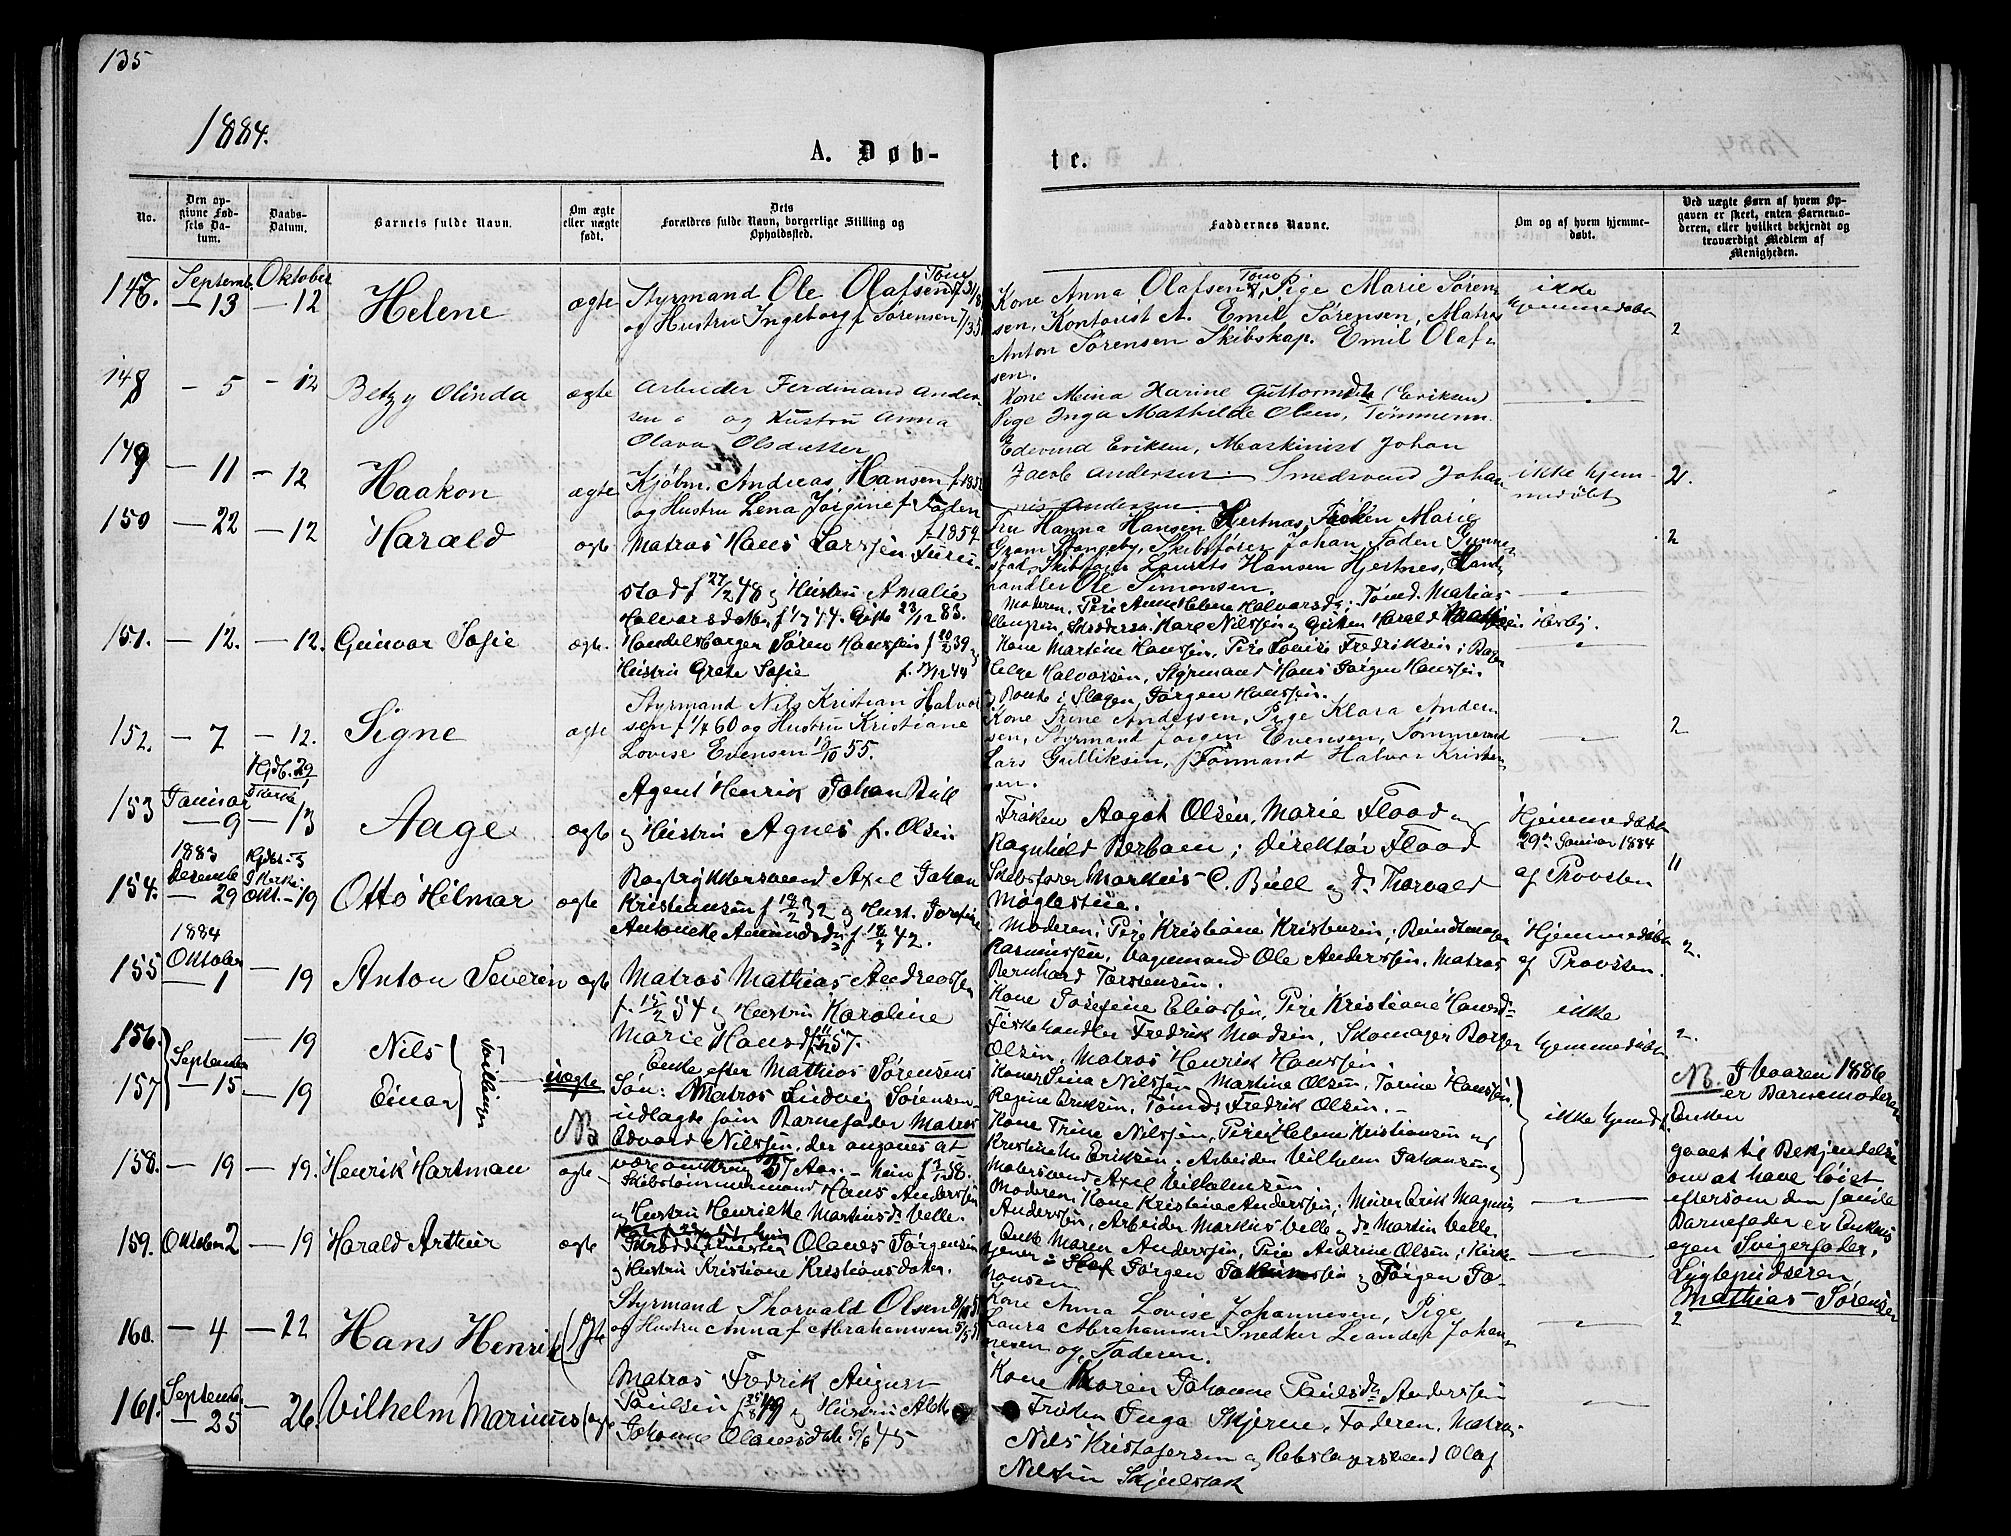 135
1884.
A. Døb-
te.
No.
Den op-
givne Fød-
sels Da-
tum.
Daabs-
Datum.
Barnets fulde Navn.
Om ægte
eller uægte
født.
Dets
Forældres fulde Navn, borgerlige Stilling og
Opholdssted.
Faddernes Navne.
Om og af hvem hjemme-
døbt.
Ved uægte Børn af hvem Op-
gaven er skeet, enten Barnemo-
deren, eller hvilket bekjendt og
troværdigt Medlem af
Menigheden.
147. Septemb. — 13 Oktober — 12 Helene ægte
Styrmand Ole Olafsen
og Hustru Ingeborg f. Sørensen
Kone Anna Olafsen, Pige Marie Søren-
sen, Kontorist A. Emil Sørensen, Matros
Anton Sørensen Skibskap. Emil Olaf-
sen.
ikke
hjemmedøbt
2
148 — 5 — 12 Betzy Olinda ægte
Arbeider Ferdinand Ander-
sen og Hustru Anna
Olava Olsdatter
Kone Meina Karine Guttormsd. (Eriksen)
Pige Inga Mathilde Olsen, Tømmerm.
Edevind Eriksen, Maskinist Johan
Jacob Andersen — Smedsvend Johan-
nes Andersen
149 — 11 — 12 Haakon ægte
Kjøbm. Andreas Hansen
og Hustru Lena Jørgine f. Foden
f. 1854
Fru Hanna Hansen Hjertnes, Frøken Marie
Gram Stangeby, Skibsfører Johan Foden Gunner-
stad, Skibsfører Laurits Hansen Hjertnes, Hand-
handler Ole Simonsen.
ikke hjem-
medøbt
2.
150 — 22 — 12 Harald ægte
Matros Hans Larssen Furu-
stad f 27/2 48 og Hustru Amalie
Halvorsdatter f 1/7 44. Gifte 23/12 83.
Moderen, Pige Anne Helene Halvorsd.; Tømd. Matias
2
151. — 12. — 12. Gunvor Sofie ægte.
Handelsborger Søren Hanssen f 20/2 39 og
Hustru Grete Sofie
Kone Martine Hanssen, Pige Lovise Fredriksen; Bager
Helge Halvorsen, Styrmand Hans Jørgen Hanssen.
152. — 7 — 12. Signe ægte
Styrmand Nils Kristian Halvor-
sen f 1/7 60 og Hustru Kristiane
Lovise Evensen 18/10 55.
Kone Trine Andersen, Pige Klara Ander-
sen, Styrmand Jørgen Evensen, Tømmermd
Lars Gulliksen, Formand Halvor Kristen-
sen.
2
153 Januar — 9 Hjdb. 29/1 I Kirke — 13 Aage ægte
Agent Henrik Johan Bull
og Hustru Agnes f. Olsen
Frøken Aagot Olsen, Marie Flood og
Ragnhild Berbom; Direktør Flood
Skibsfører Markus C. Bull og Do. Thorvald
Møglestue.
Hjemmedøbt
29. Januar 1884
af Provsten
154. 1883 Decembe — 29 I Kirke Okt. — 19 Otto Hilmar ægte
Bogtrykkersvend Axel Johan
Kristiansen f 18/2 32 og Hust. Josefine
Antonette Amundsda f. 18/7 42.
Moderen; Pige Kristiane Kristensen; Bundtmager
Rasmussen, Vognmand Ole Anderssen, Matros
Bernhard Torstensen.
Hjemmedøbt
af Provsten.
2.
155 1884 Oktober — 1 — 19 Anton Severin ægte
Matros Mathias Andreassen
f. 15/2 54 og Hustru Karoline
Marie Hansd.
Kone Josefine Eliassen, Pige Kristiane Hansd.
Fiskehandler Fredrik Madsen, Skomager Borger
Olsen, Matros Henrik Hanssen.
ikke
hjemmedøbt
2.
156. September — 15 — 19 Nils
157 — 19 Einar
Tvillinger
uægte
NB
Enke efter Mathias Sørensens
Søn: Matros Ludvig Sørensen
udlagte som Barnefader Matros
Edvard Nilssen, der angaves at
være omkring 25 Aar.
Koner Sina Nilssen, Martine Olsen, Torine Hanssen,
Regine Eriksen. Tømd. Fredrik Olsen.
Kone Trine Nilssen, Pige Helene Kristiansen og
Kristine M Eriksen; Arbeider Vilhelm Johansen og
Malersvend Axel Vilhelmsen.
ikke hjemd.
NB. I Vaaren 1886
er Barnemoderen
Enken
gaaet til Bekjendelse
om at have løiet
eftersom den sande
Barnefader er Enkens
egen Svigerfader,
Lygtepudseren,
Mathias Sørensen
158. — 19 — 19. Henrik Hartman ægte
Skibstømmermand Hans Anderssen
og Hustru Henriette Martinsd. Velle.
Moderen, Kone Kristine Anderssen; Murer Erik Magnus
Anderssen, Arbeider Markus Velle og Do Martin Velle.
159. Oktober 2 — 19 Harald Arthur ægte
Skræddermester Olaves Jørgensen
og Hustru Kristiane Kristiansdatter.
Enke Maren Anderssen, Pige Andrine Olsen; Kirke-
tjener Jørgen Johannessen og Jørgen Jo-
hansen
160. — 4 — 22 Hans Henrik ægte
Styrmand Thorvald Olsen
og Hustru Anna f. Abrahamsen
Kone Anna Lovise Johannesen, Pige
Laura Abrahamsen Snedker Leander Johan-
nesen og Faderen.
2
161. Septemb. — 25 — 26. Vilhelm Marinius ægte
Matros Fredrik August
Paulsen og Hustru
Johanne Olavesdatt. 45
Kone Maren Johanne Paulsd. Anderssen
Frøken Inga Skjerve, Faderen, Matros
Nils Kristofersen og Rebslagersvend Olaf
Nilsen Skjelstak